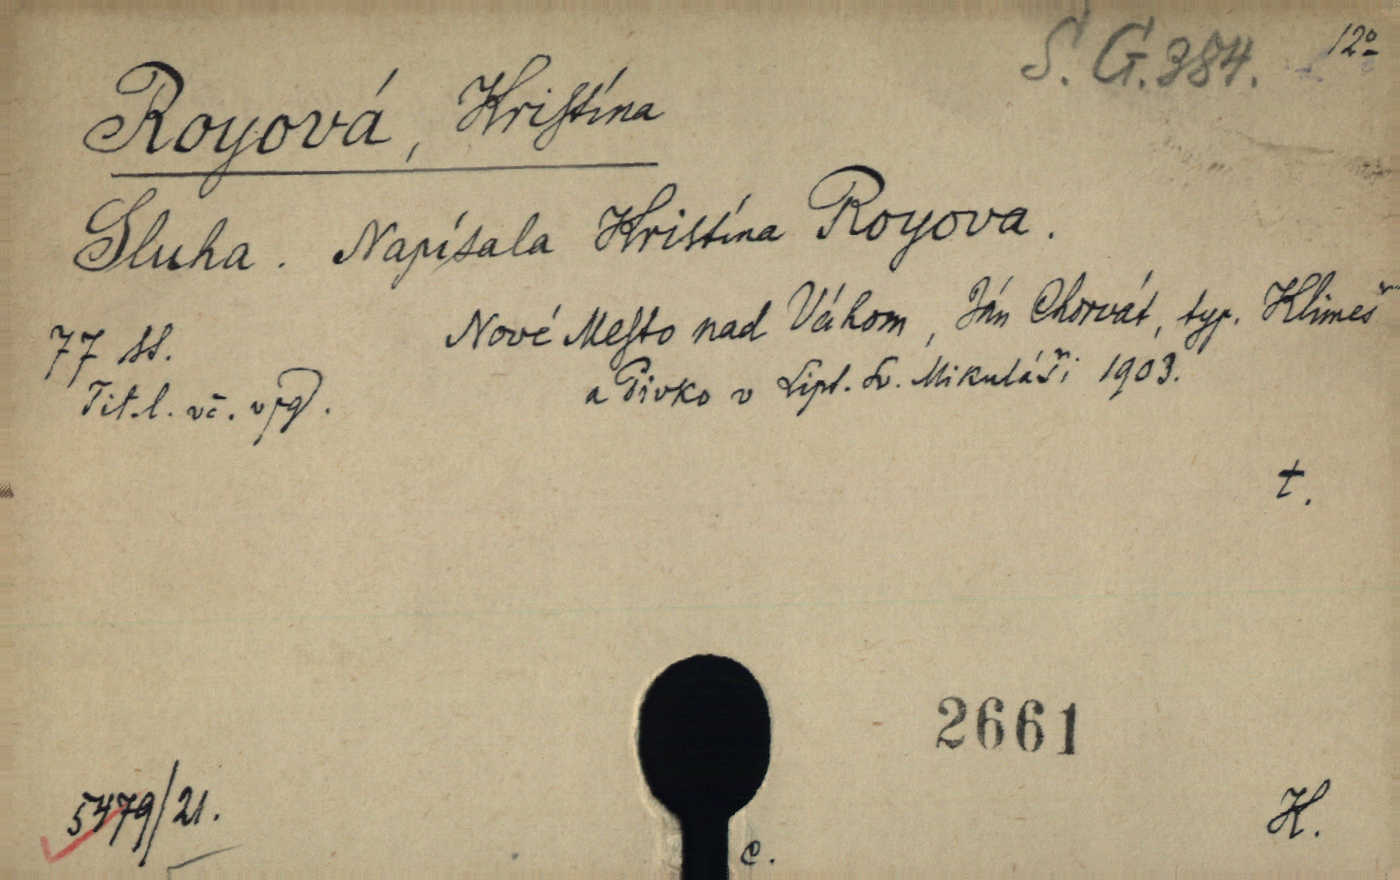 S. G. 384. 12º
Royová, Kristína
Sluha. Napísala Kristína Royova.
Nové Mesto nad Váhom, Ján Chorvát, typ. Klimeš
77 ss. a Pivko v Lipt. Sv. Mikuláši 1903.
Tit. l. vč. vpg.
t.
2661
5479/21. H.
c.